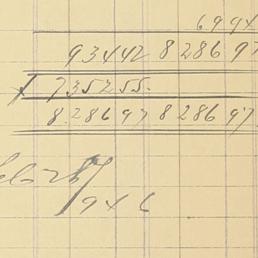 6994
93442 8 286 97
7352 55.
8.286 97 8 286 97
1946